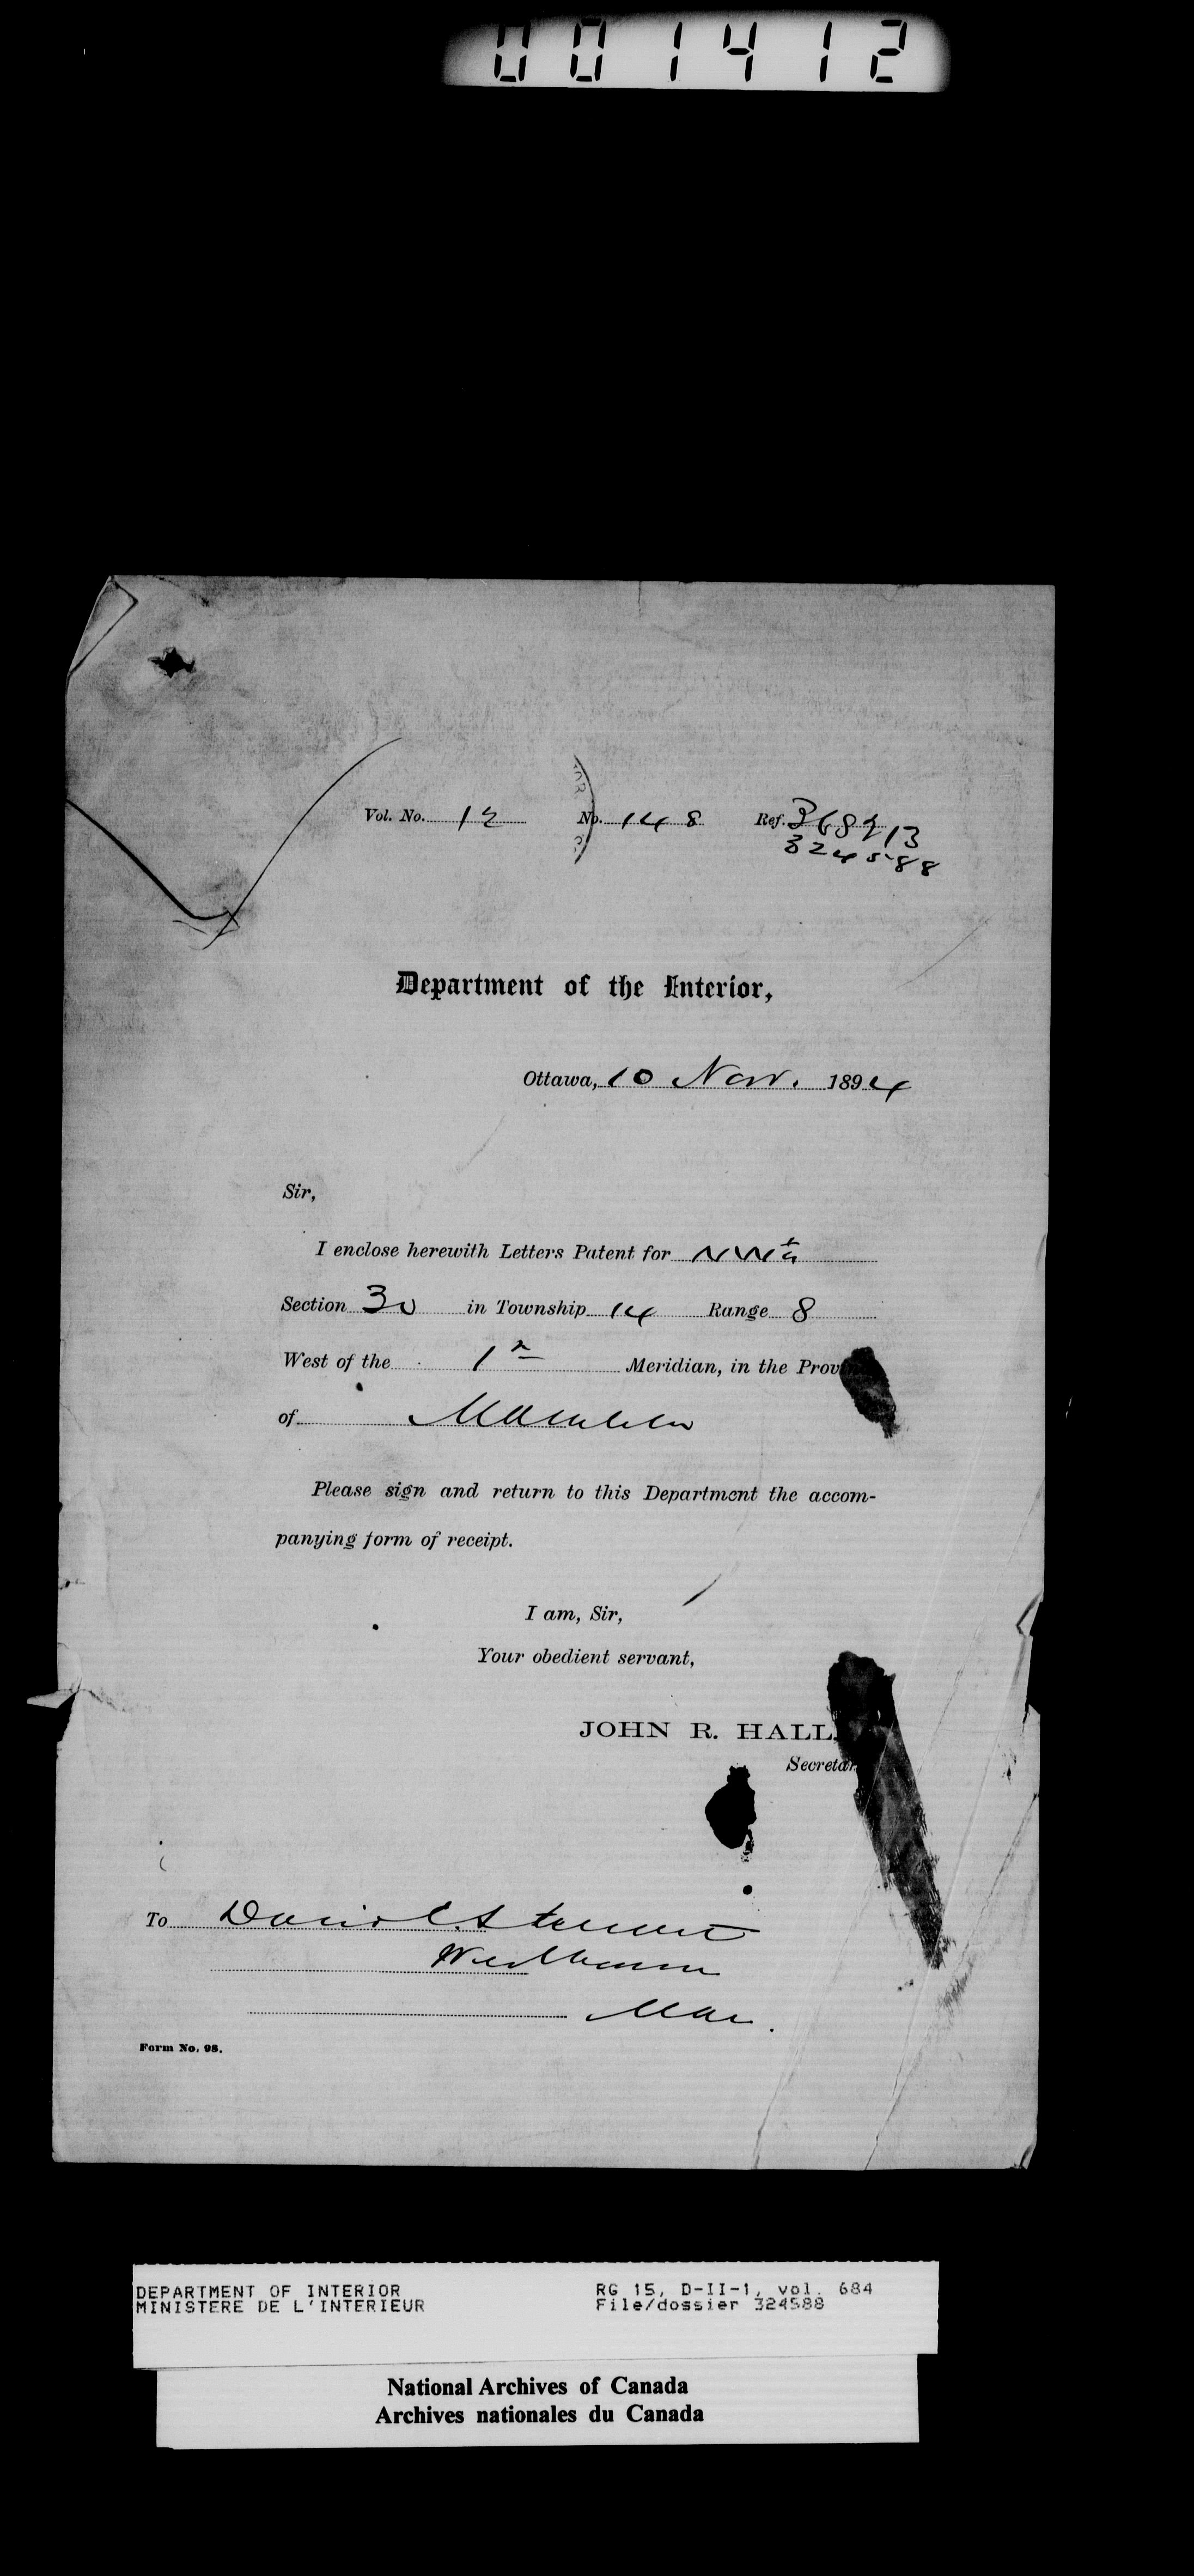 001412
Vol. No. 12 No. 148 Ref. 368913
324588
Department of the Interior,
Ottawa, 10 Nov. 1894
Sir,
I enclose herewith Letters Patent for NW¼
Section 30 in Township 14 Range 8
West of the 1st Meridian, in the Prov
of Manitoba
Please sign and return to this Department the accom-
panying form of receipt.
I am, Sir,
Your obedient servant,
JOHN R. HALL,
Secretar
To David C. Stewart
Westbourne
Man.
Form No. 98.
DEPARTMENT OF INTERIOR RG 15, D-II-1, vol. 684
MINISTERE DE L'INTERIEUR File/dossier 324588
National Archives of Canada
Archives nationales du Canada